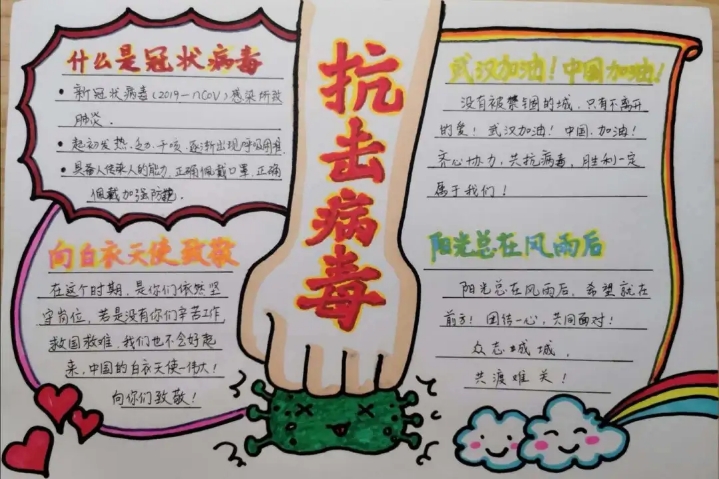 抗击病毒
什么是冠状病毒
• 新冠状病毒(2019-nCoV)感染所致
肺炎.
• 起初发热、乏力、干咳、逐渐出现呼吸困难.
• 具备人传染人的能力,正确佩戴口罩,正确
佩戴加强防护.
向白衣天使致敬
在这个时期,是你们依然坚
守岗位,若是没有你们辛苦工作
救国救难,我们也不会好起
来,中国的白衣天使-伟大!
向你们致敬!
武汉加油!中国加油!
没有被禁的城,只有不离开
的爱!武汉加油!中国.加油!
齐心协力,共抗病毒,胜利一定
属于我们!
阳光总在风雨后
阳光总在风雨后,希望就在
前方!团结一心,共同面对!
众志成城,
共渡难关!